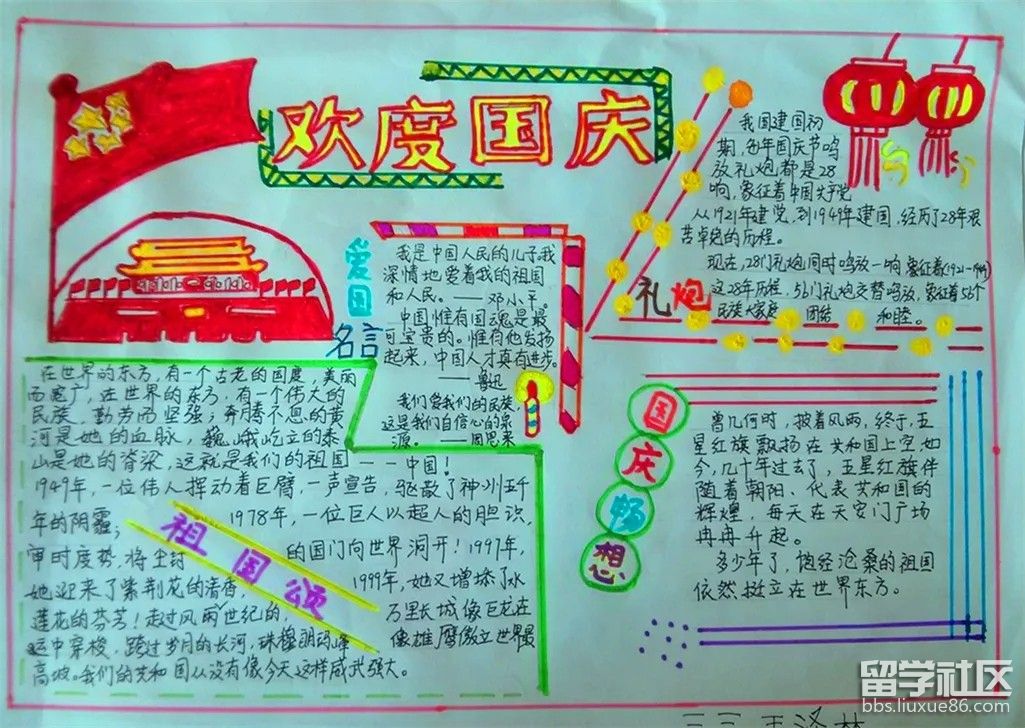 欢度国庆
爱国
名言
我是中国人民的儿子,我
深情地爱着我的祖国
和人民。——邓小平。
中国惟有国魂是最
可宝贵的。惟有他发扬
起来,中国人才真有进步。
——鲁迅
我们爱我们的民族,
这是我们自信心的泉
源。——周恩来
我国建国初
期,每年国庆节鸣
放礼炮都是28
响,象征着中国共产党
从1921年建党,到1949年建国,经历了28年艰
苦卓绝的历程。
现在,28门礼炮同时鸣放一响象征着(1921-1949)
这28年历程,56门礼炮交替鸣放,象征着56个
民族大家庭 团结 和睦。
礼炮
在世界的东方,有一个古老的国度,美丽
而宽广,在世界的东方,有一个伟大的
民族,勤劳而坚强;奔腾不息的黄
河是她的血脉,巍峨屹立的泰
山是她的脊梁,这就是我们的祖国——中国!
1949年,一位伟人挥动着巨臂,一声宣告,驱散了神州五千
年的阴霾; 1978年,一位巨人以超人的胆识,
审时度势,将尘封 的国门向世界洞开!1997年,
她迎来了紫荆花的清香, 1999年,她又增添了水
莲花的芬芳!走过风雨世纪的, 万里长城像巨龙在
运中穿梭,跨过岁月的长河,珠穆朗玛峰 像雄鹰傲立世界最
高坡。我们的共和国从没有像今天这样威武强大。
祖国颂
国庆畅想
曾几何时,披着风雨,终于,五
星红旗飘扬在共和国上空,如
今,几十年过去了,五星红旗伴
随着朝阳、代表共和国的
辉煌,每天在天安门广场
冉冉升起。
多少年了,饱经沧桑的祖国
依然挺立在世界东方。
留学社区
bbs.liuxue86.com